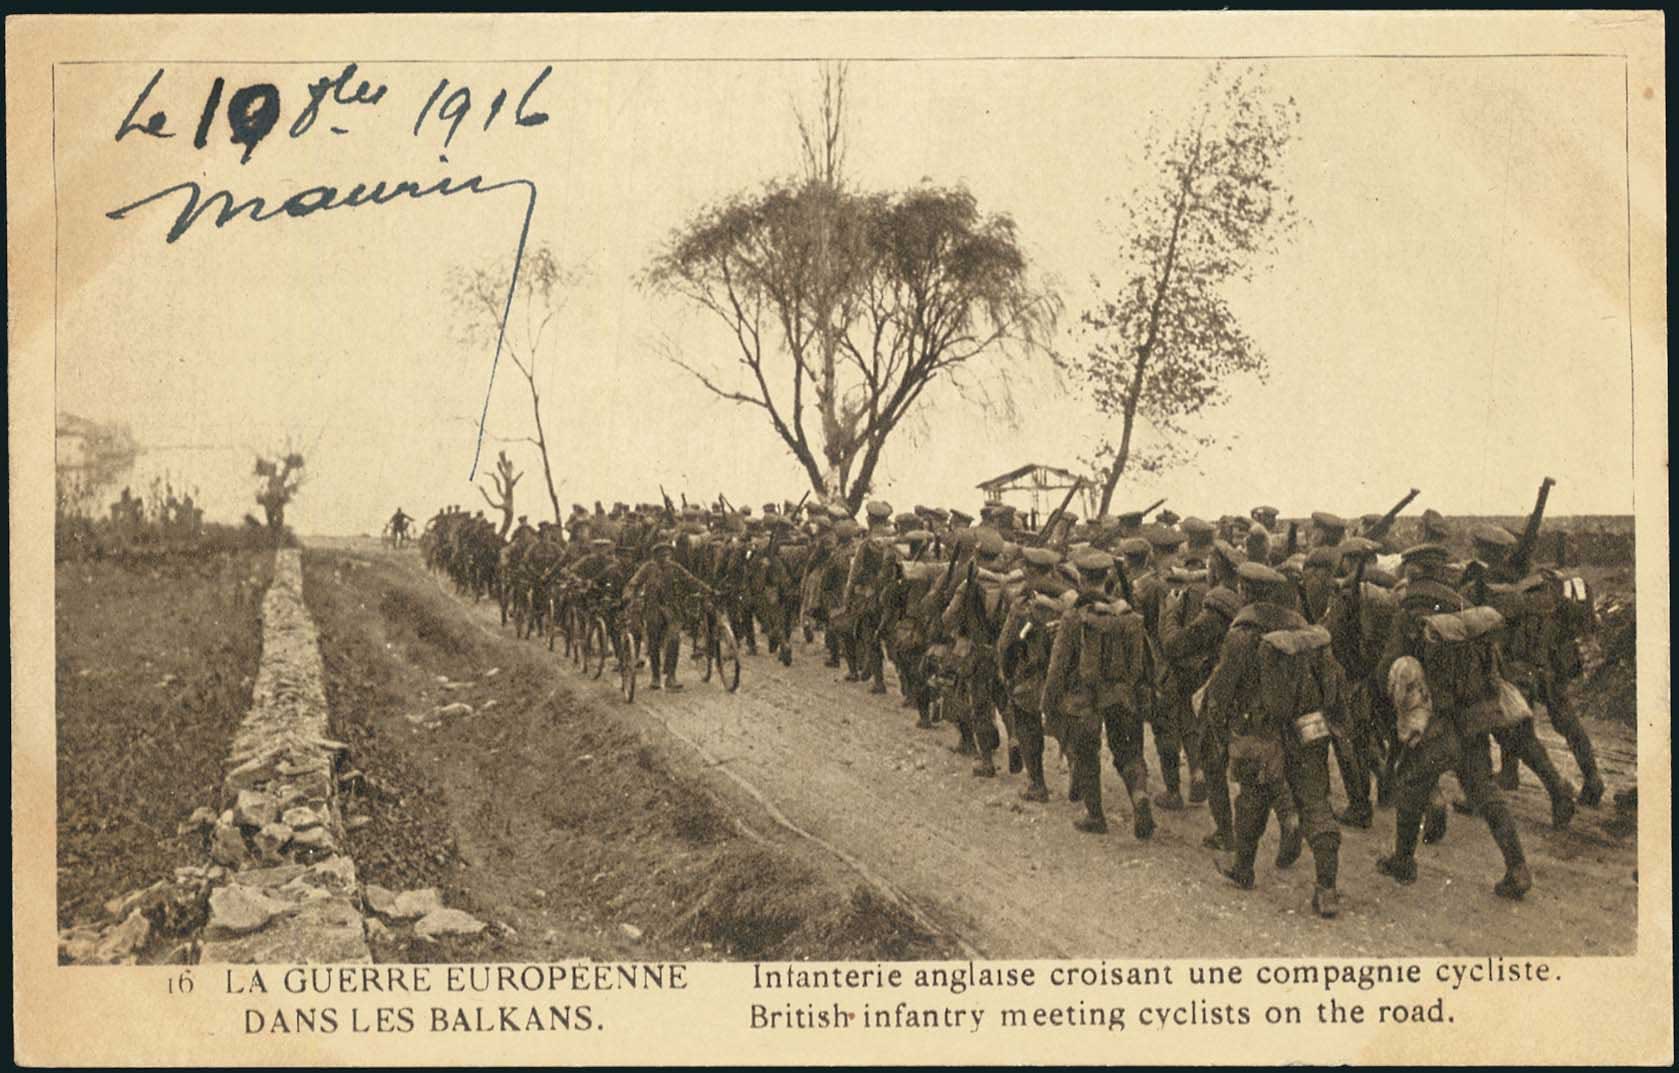 Le 19 8bre 1916
Maurice
16 LA GUERRE EUROPÉENNE
DANS LES BALKANS.
Infanterie anglaise croisant une compagnie cycliste.
British infantry meeting cyclists on the road.